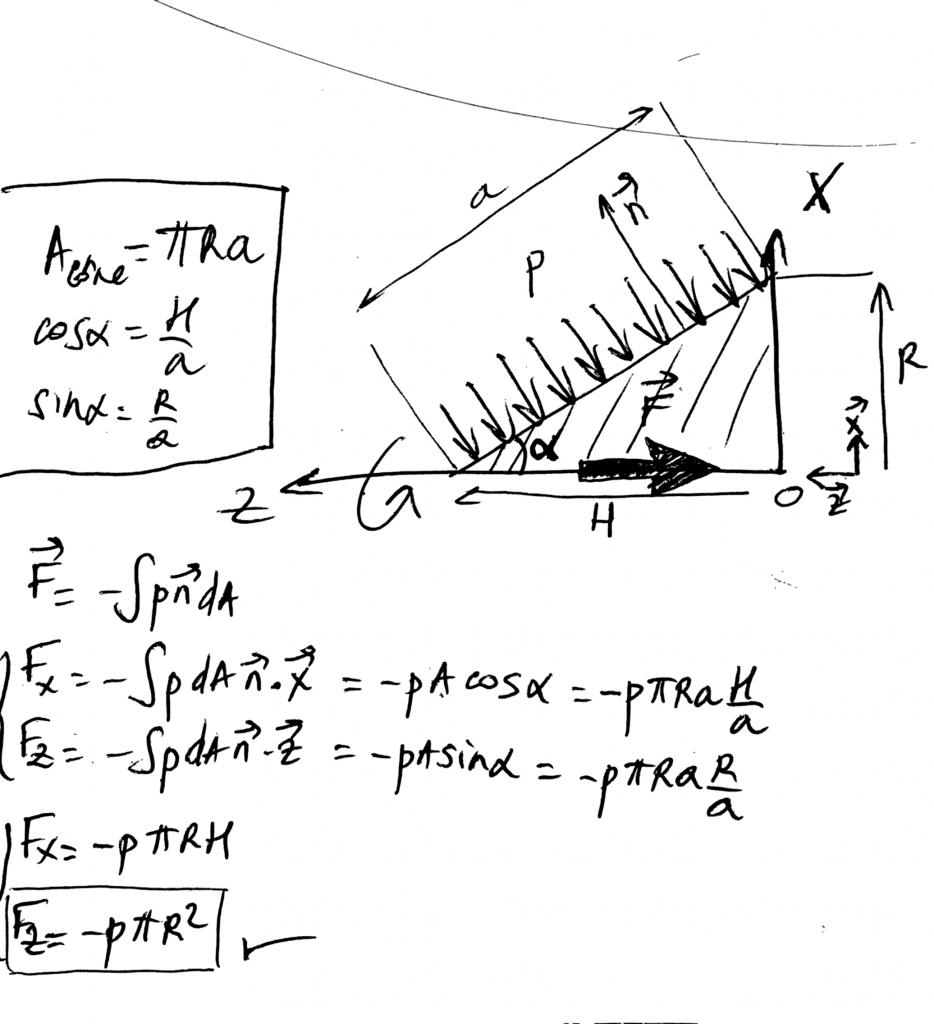 a
n⃗
X
P
A_cone = πRa
cosα = H/a
sinα = R/a
R
F⃗
x⃗
α
Z
O
z⃗
H
F⃗ = -∫pn⃗dA
F_x = -∫p dA n⃗.x⃗ = -pA cosα = -pπRa H/a
F_z = -∫p dA n⃗.z⃗ = -pA sinα = -pπRa R/a
F_x = -pπRH
F_z = -pπR²